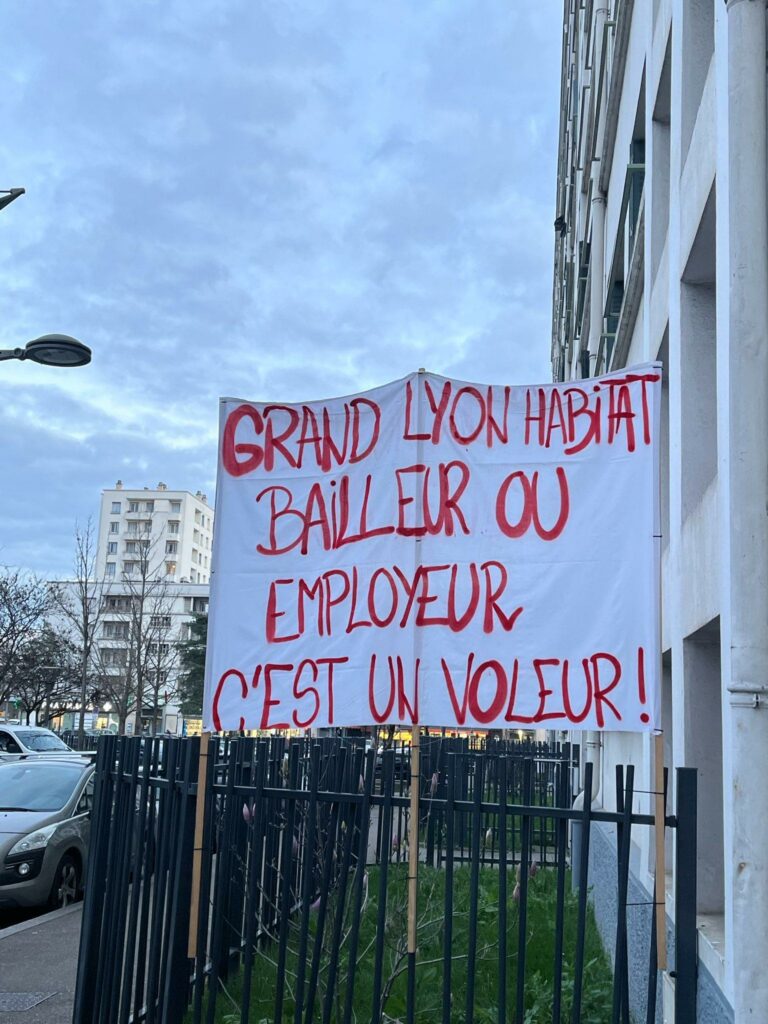 GRAND LYON HABITAT
BAiLLEUR OU
EMPLOYEUR
C'EST UN VOLEUR !